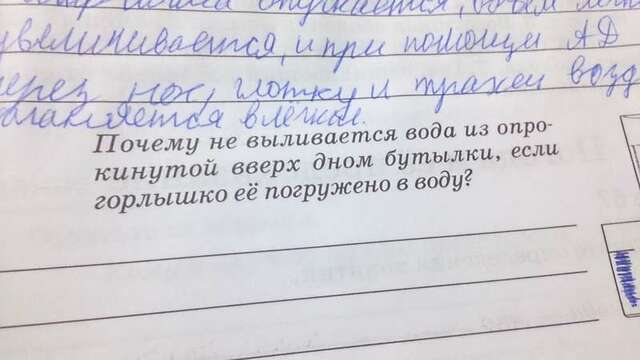 увеличивается, и при помощи АД
через нос, глотку и трахеи возд
в лёгкие.
Почему не выливается вода из опро-
кинутой вверх дном бутылки, если
горлышко её погружено в воду?